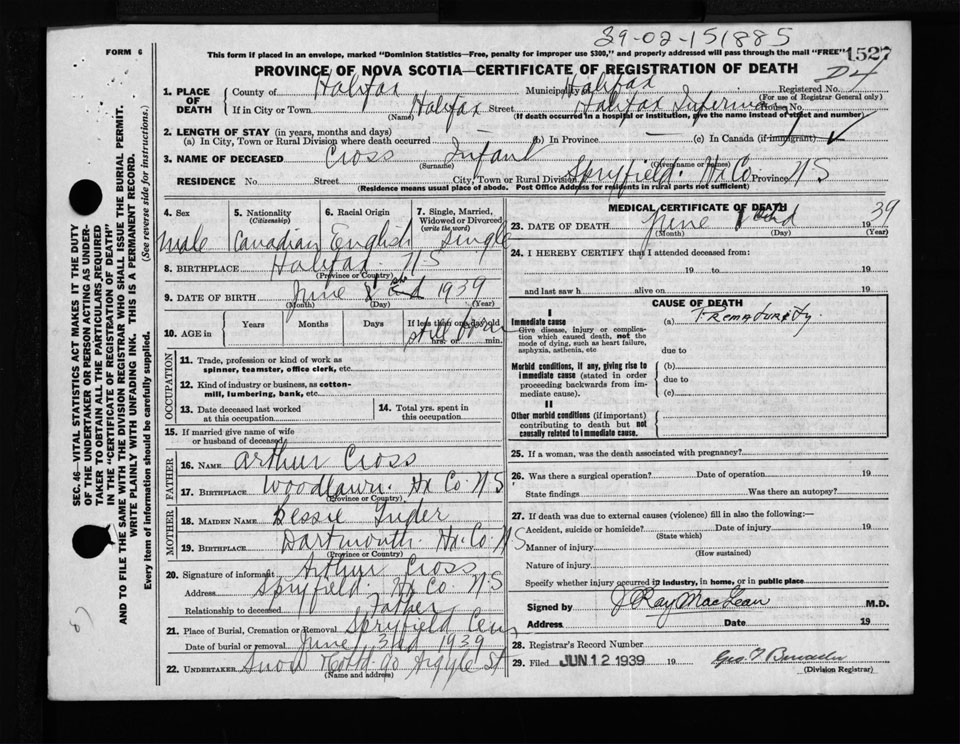 39-02-151885
FORM 6
This form if placed in an envelope, marked "Dominion Statistics—Free, penalty for improper use $300," and properly addressed will pass through the mail "FREE"
1527
PROVINCE OF NOVA SCOTIA—CERTIFICATE OF REGISTRATION OF DEATH
1. PLACE OF DEATH
County of Halifax
Municipality Halifax
Registered No.
(For use of Registrar General only)
If in City or Town Halifax Street Halifax House No.
(Name)
(If death occurred in a hospital or institution, give the name instead of street and number)
2. LENGTH OF STAY (in years, months and days)
(a) In City, Town or Rural Division where death occurred (b) In Province (c) In Canada (if immigrant)
3. NAME OF DECEASED Cross Infant
(Surname) (Given name or names)
RESIDENCE No. Street City, Town or Rural Division Spryfield. Hx Co Province N S
(Residence means usual place of abode. Post Office Address for residents in rural parts not sufficient)
4. Sex
Male
5. Nationality
(Citizenship)
Canadian
6. Racial Origin
English
7. Single, Married, Widowed or Divorced
(write the word)
Single
8. BIRTHPLACE Halifax. N S
(Province or Country)
9. DATE OF BIRTH June 1939
(Month) (Day) (Year)
10. AGE in
Years Months Days If less than one day old
hrs. or min.
Still born
OCCUPATION
11. Trade, profession or kind of work as spinner, teamster, office clerk, etc.
12. Kind of industry or business, as cotton-mill, lumbering, bank, etc.
13. Date deceased last worked at this occupation
14. Total yrs. spent in this occupation
15. If married give name of wife or husband of deceased
FATHER
16. NAME Arthur Cross
17. BIRTHPLACE Woodlawn. Hx Co. N S
(Province or Country)
MOTHER
18. MAIDEN NAME Bessie
19. BIRTHPLACE Dartmouth. Hx. Co. N S
(Province or Country)
20. Signature of informant Arthur Cross
Address Spryfield. Hx Co. N S
Relationship to deceased Father
21. Place of Burial, Cremation or Removal Spryfield Cem
Date of burial or removal June 3rd 1939
22. UNDERTAKER Snow 90 Argyle St
(Name and address)
MEDICAL CERTIFICATE OF DEATH
23. DATE OF DEATH June 1939
(Month) (Day) (Year)
24. I HEREBY CERTIFY that I attended deceased from:
19 to 19
and last saw h alive on 19
CAUSE OF DEATH
I
Immediate cause
Give disease, injury or complication which caused death, not the mode of dying, such as heart failure, asphyxia, asthenia, etc
(a) Prematurity.
due to
Morbid conditions, if any, giving rise to immediate cause (stated in order proceeding backwards from immediate cause).
(b)
due to
(c)
II
Other morbid conditions (if important) contributing to death but not causally related to immediate cause.
25. If a woman, was the death associated with pregnancy?
26. Was there a surgical operation? Date of operation 19
State findings Was there an autopsy?
27. If death was due to external causes (violence) fill in also the following:—
Accident, suicide or homicide? Date of injury 19
(State which)
Manner of injury
(How sustained)
Nature of injury
Specify whether injury occurred in industry, in home, or in public place
Signed by J Ray MacLean M.D.
Address Date 19
28. Registrar's Record Number
29. Filed JUN 12 1939 19
(Division Registrar)
SEC. 46—VITAL STATISTICS ACT MAKES IT THE DUTY
OF THE UNDERTAKER OR PERSON ACTING AS UNDER-
TAKER TO OBTAIN ALL THE PARTICULARS REQUIRED
IN THE "CERTIFICATE OF REGISTRATION OF DEATH"
AND TO FILE THE SAME WITH THE DIVISION REGISTRAR WHO SHALL ISSUE THE BURIAL PERMIT.
WRITE PLAINLY WITH UNFADING INK. THIS IS A PERMANENT RECORD.
Every item of information should be carefully supplied. (See reverse side for instructions.)